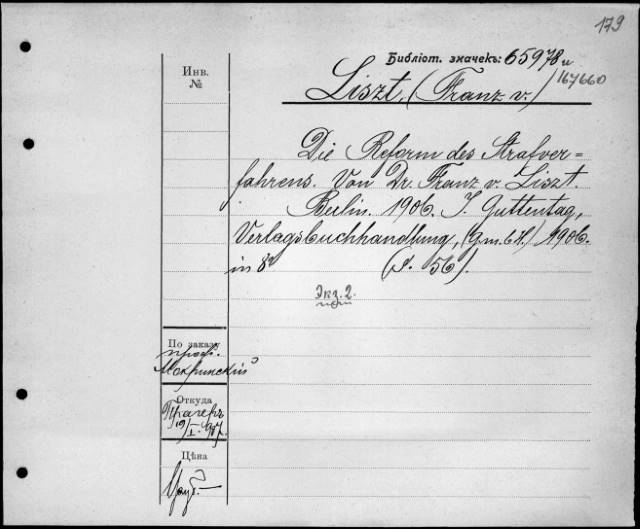 179
Библіот. значекъ: 65978 и
167660
Инв.
№
Liszt, (Franz v.)
Die Reform des Strafver=
fahrens. Von Dr. Franz v. Liszt.
Berlin. 1906. J. Guttentag,
Verlagsbuchhandlung, (G.m.b.H.) 1906.
in 8º (S. 56).
Экз. 2.
По заказу
проф.
Мокринскій
Откуда
Трагеръ
19/I. 907.
Цѣна